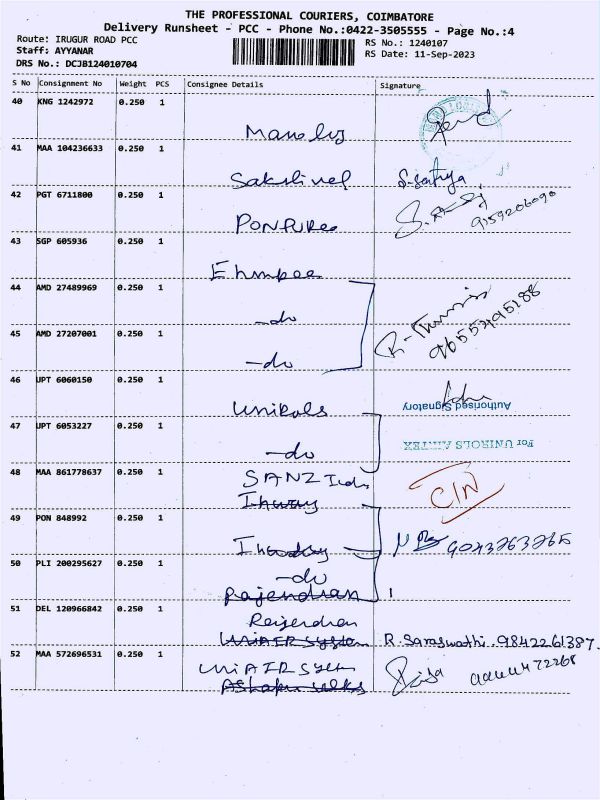 THE PROFESSIONAL COURIERS, COIMBATORE
Delivery Runsheet - PCC - Phone No.:0422-3505555 - Page No.:4
Route: IRUGUR ROAD PCC
RS No.: 1240107
Staff: AYYANAR
RS Date: 11-Sep-2023
DRS No.: DCJB124010704
S No Consignment No Weight PCS Consignee Details Signature
40 KNG 1242972 0.250 1
41 MAA 104236633 0.250 1
Sakthivel S. Sathya
42 PGT 6711800 0.250 1
PONPURE 9159206090
43 SGP 605936 0.250 1
Ehmpee
44 AMD 27489969 0.250 1
-do
45 AMD 27207001 0.250 1
-do
46 UPT 6060150 0.250 1
Unirols Authorised Signatory
47 UPT 6053227 0.250 1
For UNIROLS AIRTEX
-do
48 MAA 861778637 0.250 1
SANZ Inds
Ihway
49 PON 848992 0.250 1
50 PLI 200295627 0.250 1
-do
Rajendran
51 DEL 120966842 0.250 1
Rajendran
UNIAIR System R. Saraswathi. 9842261387.
52 MAA 572696531 0.250 1
UNIAIR System